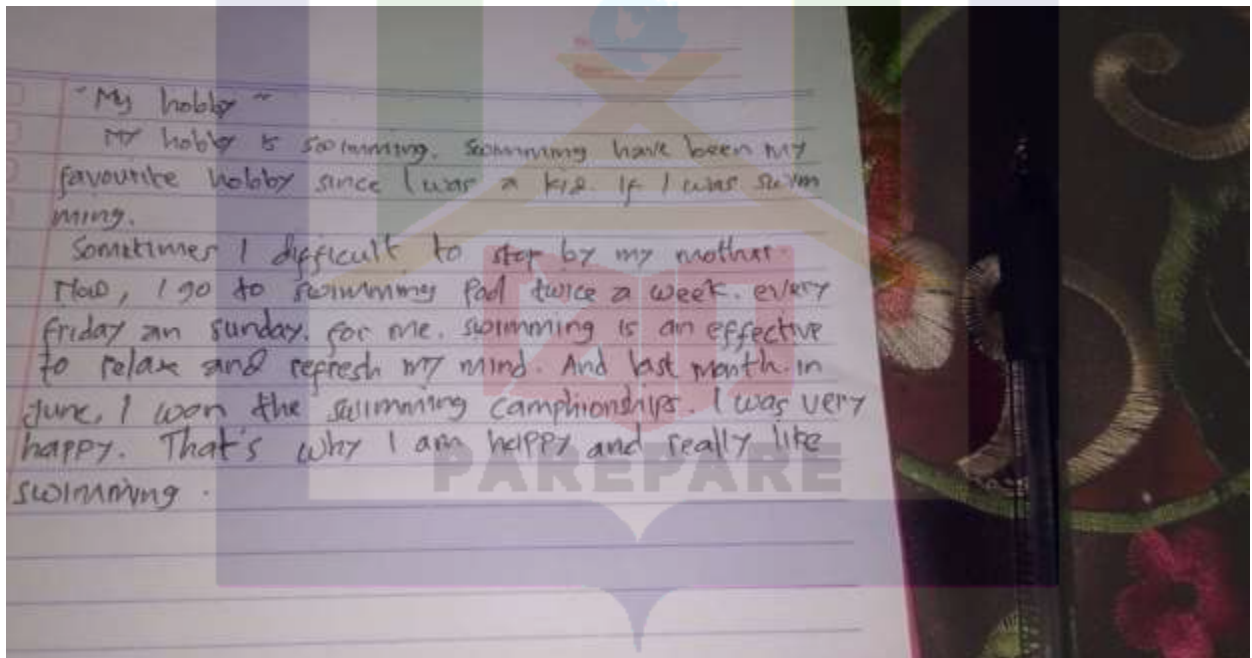 ~ My hobby ~
My hobby is swimming. Swimming have been my
favourite hobby since I was a kid. If I was swim
ming.
Sometimes I difficult to stop by my mother.
Now, I go to swimming Pool twice a week. every
friday an sunday. for me. swimming is an effective
to relax and refresh my mind. And last month. in
June, I won the swimming camphionships. I was very
happy. That's why I am happy and really like
swimming.
PAREPARE